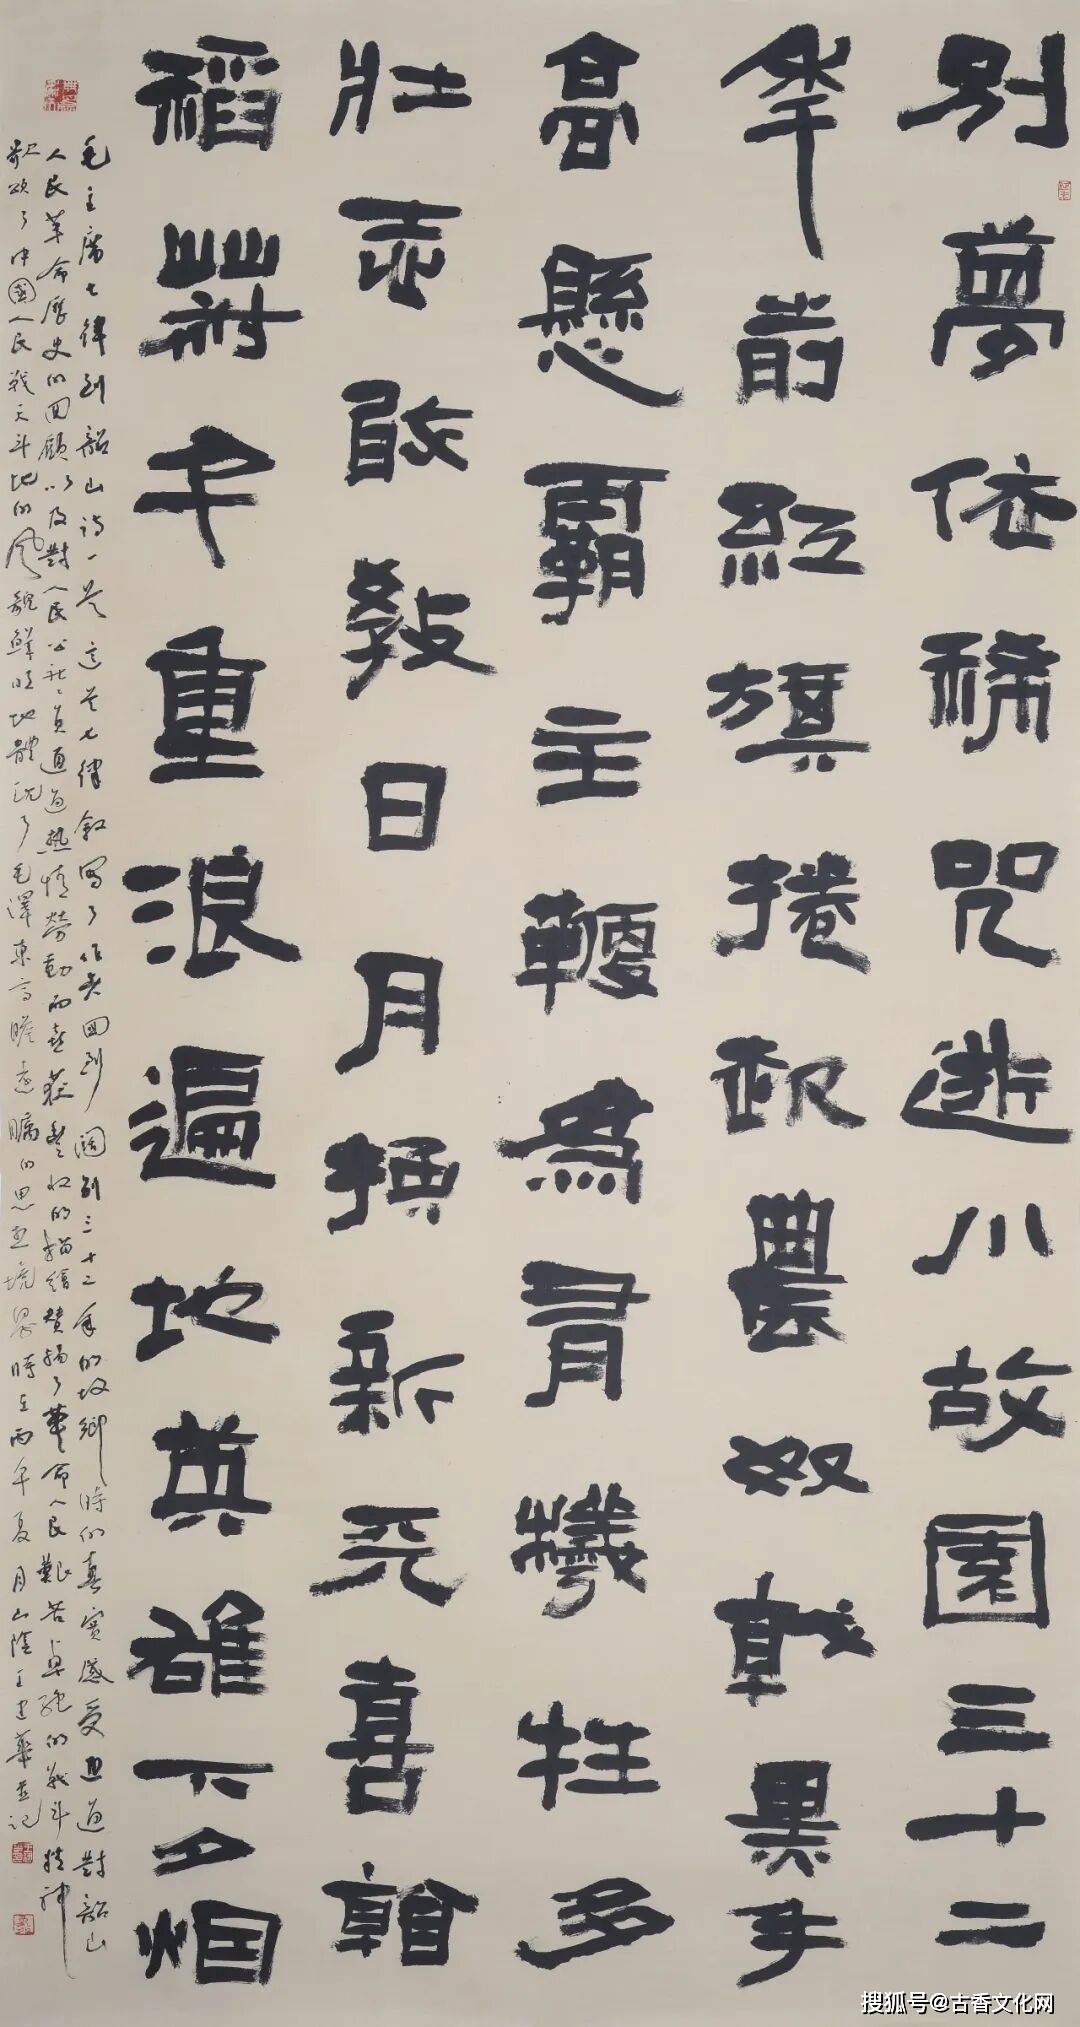 別夢依稀咒逝川故園三十二
年前紅旗捲起農奴戟黑手
高懸霸主鞭為有犧牲多
壯志敢教日月換新天喜看
稻菽千重浪遍地英雄下夕烟
毛主席七律到韶山詩一首這首七律叙寫了作者回到闊別三十二年的故鄉時的真實感受通過對韶山
人民革命歷史的回顧以及對人民公社社員通過熱情勞動而喜獲豐收的描繪贊揚了革命人民艱苦卓絕的戰斗精神
歌頌了中國人民戰天斗地的風貌鮮明地體現了毛澤東高瞻遠矚的思想境界時在丙午夏月山陰王建華並記
搜狐号@古香文化网